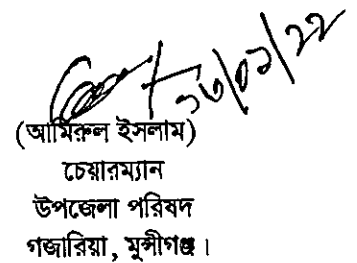 ২৩/০২/২২
(আমিরুল ইসলাম)
চেয়ারম্যান
উপজেলা পরিষদ
গজারিয়া, মুন্সীগঞ্জ।